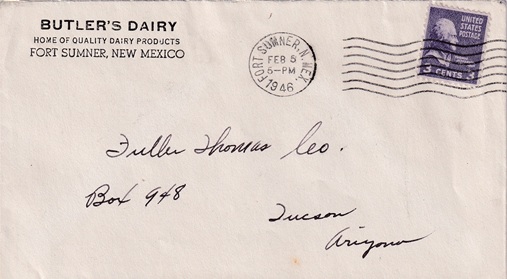 BUTLER'S DAIRY
HOME OF QUALITY DAIRY PRODUCTS
FORT SUMNER, NEW MEXICO
FORT SUMNER, N. MEX.
FEB 5
5-PM
1946
UNITED
STATES
POSTAGE
3 CENTS 3
Fuller Thomas Co.
Box 948
Tucson
Arizona